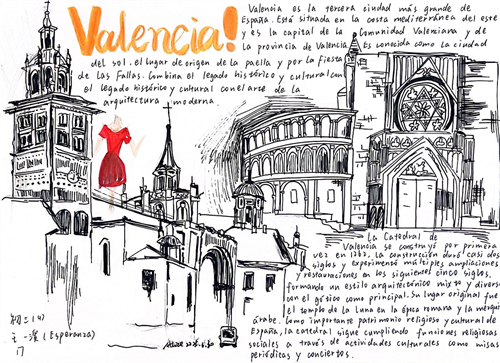 Valencia!
Valencia es la tercera ciudad más grande de
España. Está situada en la costa mediterránea del este
y es la capital de la Comunidad Valenciana y de
la provincia de Valencia. Es conocida como la ciudad
del sol. el lugar de origen de la paella y por la fiesta
de las Fallas. Combina el legado histórico y cultural con
el legado histórico y cultural con el arte de la
arquitectura moderna.
La Catedral de
Valencia se construyó por primera
vez en 1262, la construcción duró casi dos
siglos y experimentó múltiples ampliaciones
y restauraciones en los siguientes cinco siglos,
formando un estilo arquitectónico mixto y diverso
con el gósico como principal. Su lugar original fue
el templo de la Luna en la época romana y la mezquita
árabe. Como importante patrimonio religioso y cultural de
España, la catedral sigue cumpliendo funciones religiosas
sociales a través de actividades culturales como misas
periódicas y conciertos.
初二14)
(Esperanza)
17